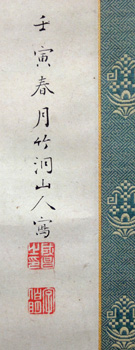 壬寅春月竹洞山人寫